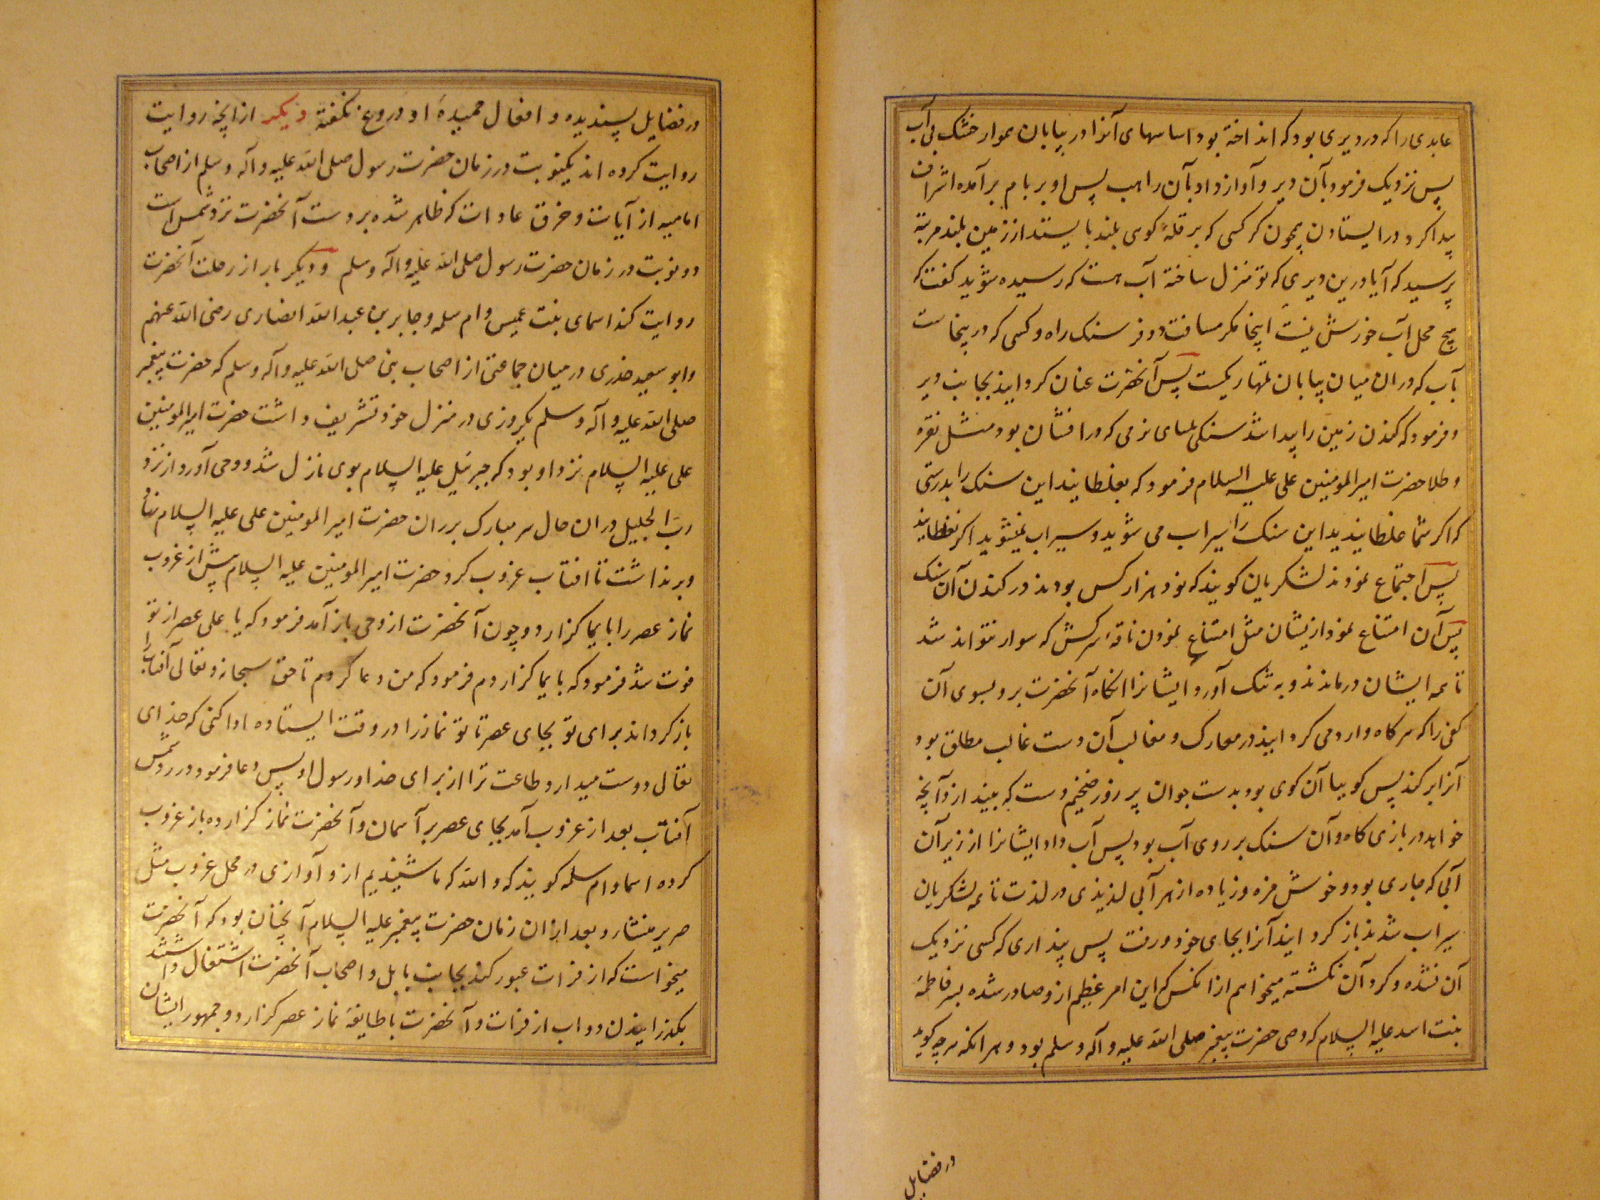 عابدی را که در دیری بود که انداخته بود اساسهای آنرا در بیابان هموار خشک بی آب
پس نزدیک فرمود بآن دیر و آواز داد بآن راهب پس او بر بام برآمده اشراف
پیدا کرد در ایستادن همچون کرکسی که بر قلهٔ کوی بلند بایستد از زمین بلند مرتبه
پرسید که آیا درین دیری که تو منزل ساخته آب هست که رسیده شوید گفت که
هیچ محل آب خورش نیست اینجا مگر مسافت دو فرسنک راه و کسی که در پنجاست
بآب که در ان میان بیابان تهاریکست پس آنحضرت عنان گردانید بجانب دیر
و فرمود که کندن زمین را پیدا شد سنکی املسای نرمی که درافشان بود مثل نقره
و طلا حضرت امیرالمؤمنین علی علیه السلام فرمود که بغلطانید این سنک را بدرستی
که اگر شما غلطانیدید این سنک را سیراب می شوید و سیراب نمیشوید اگر نغلطانید
پس اجتماع نمودند لشکریان گویند که نود هزار کس بودند در کندن آن سنک
پس آن امتناع نمود از یشان مثل امتناع نمودن ناقهٔ سرکش که سوار نتواند شد
تا همه ایشان درماندند و به تنک آورد ایشانرا انگاه آنحضرت برد بسوی آن
کفی را که هر گاه وارد می گردانید در معارک و مغالب آن دست غالب مطلق بود
آنرا برکند پس گوییا آن کوی بود بدست جوان پر زور ضخیم دست که بیندازد آنچه
خواهد در بازی گاه و آن سنک بر روی آب بود پس آب داد ایشانرا از زیر آن
آبی که جاری بود و خوش مزه و زیاده از هر آبی لذیذی در لذت تا همه لشکریان
سیراب شدند باز گردانید آنرا بجای خود و رفت پس پنداری که کسی نزدیک
آن نشده و گرد آن نگشته میخواهم از انکس که این امر عظیم از و صادر شده پسر فاطمهٔ
بنت اسد علیه السلام که وصی حضرت پیغمبر صلی الله علیه و آله و سلم بود و هر انکه هر چه گوید
در فضایل
در فضایل پسندیده و افعال حمیدهٔ او دروغ نگفته دیکر از انچه روایت
روایت کرده اند یکنوبت در زمان حضرت رسول صلی الله علیه و آله و سلم از اصحاب
امامیه از آیات و خرق عادات که ظاهر شده بر دست آنحضرت نزد شمس است
دو نوبت در زمان حضرت رسول صلی الله علیه و آله و سلم و دیگر بار از رحلت آنحضرت
روایت کند اسمای بنت عمیس و ام سلمه و جابر بن عبد الله انصاری رضی الله عنهم
و ابو سعید خدری در میان جماعتی از اصحاب نبی صلی الله علیه و آله و سلم که حضرت پیغمبر
صلی الله علیه و آله و سلم یکروزی در منزل خود تشریف داشت حضرت امیرالمومنین
علی علیه السلام نزد او بود که جبرئیل علیه السلام بوی نازل شد و وحی آورد از نزد
رب الجلیل در ان حال سر مبارک بر ران حضرت امیرالمومنین علی علیه السلام نهاد
و برنداشت تا افتاب غروب کرد حضرت امیرالمومنین علیه السلام پیش از غروب
نماز عصر را بایما گزارد و چون آنحضرت از وحی باز آمد فرمود که یا علی عصر از تو
فوت شد فرمود که بایما گزاردم فرمود که من دعا کردم تا حق سبحانه و تعالی آفتاب را
باز گرداند برای تو بجای عصر تا تو نماز را در وقت ایستاده ادا کنی که خدای
تعالی دوست میدارد طاعت ترا از برای خدا و رسول او پس دعا فرمود در رد شمس
آفتاب بعد از غروب آمد بجای عصر بر آسمان و آنحضرت نماز گزارده باز غروب
کرده اسما و ام سلمه گویند که والله که ما شنیدیم از و آوازی در محل غروب مثل
صریر منشار و بعد از ان زمان حضرت پیغمبر علیه السلام آنچنان بود که آنحضرت
میخواست که از فرات عبور کند بجانب بابل و اصحاب آنحضرت اشتغال داشتند
بگذرانیدن دواب از فرات و آنحضرت با طایفهٔ نماز عصر گزارد و جمهور ایشان